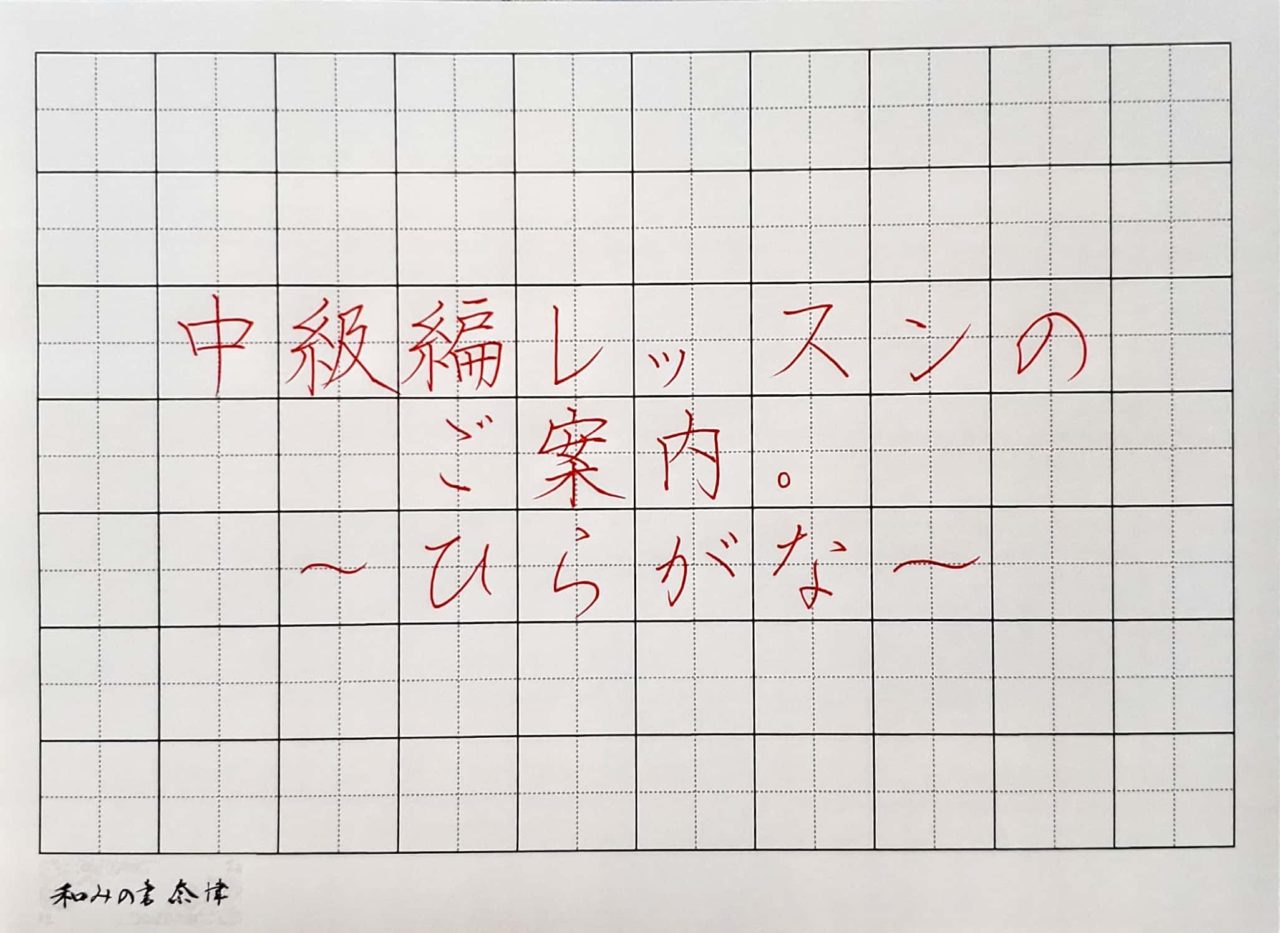 中級編レッスンの
ご案内。
～ひらがな～
和みの書 奈津